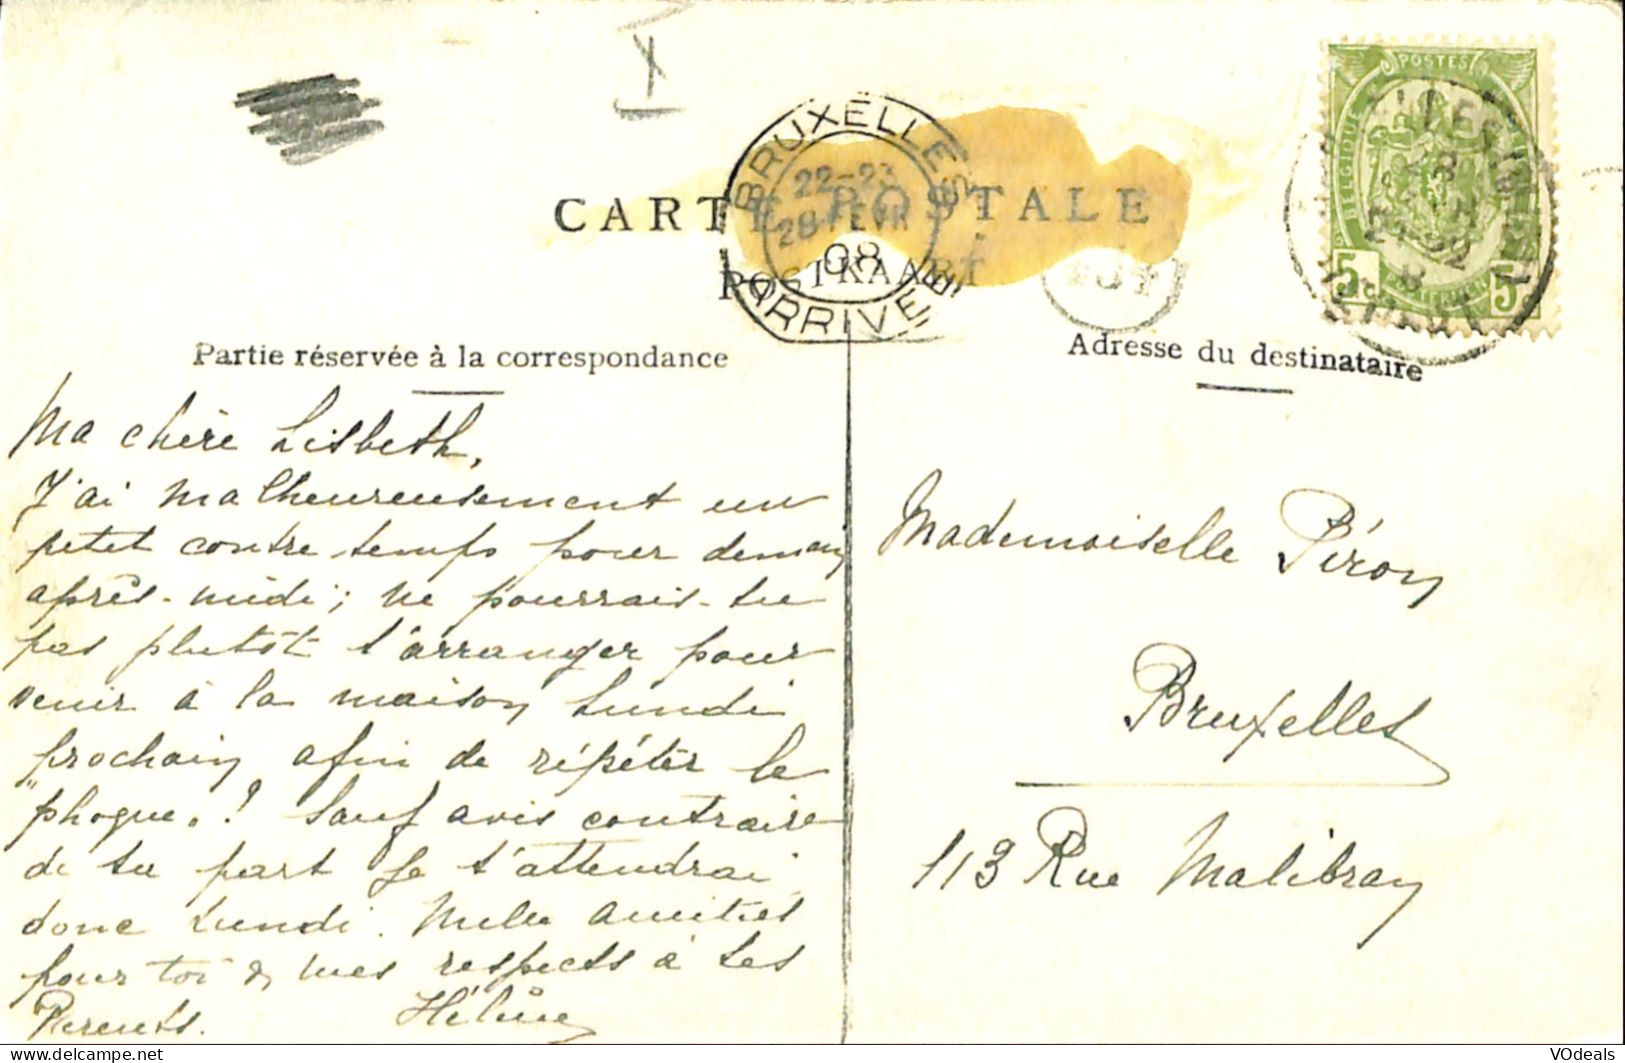 CARTE POSTALE
POSTKAART
BRUXELLES
22-23
28 FEVR
08
ARRIVEE
POSTES
BELGIQUE
5 c
5 c
Partie réservée à la correspondance
Adresse du destinataire
Ma chère Lisbeth,
J'ai malheureusement un
petit contre temps pour demain
après-midi; ne pourrais-tu
pas plutôt t'arranger pour
venir à la maison Lundi
prochain afin de répéter le
"phoque." ! Sauf avis contraire
de ta part je t'attendrai
donc Lundi. Mille amitiés
pour toi & mes respects à tes
Parents. Hélène
Mademoiselle Piron
Bruxelles
113 Rue Malibran
VOdeals